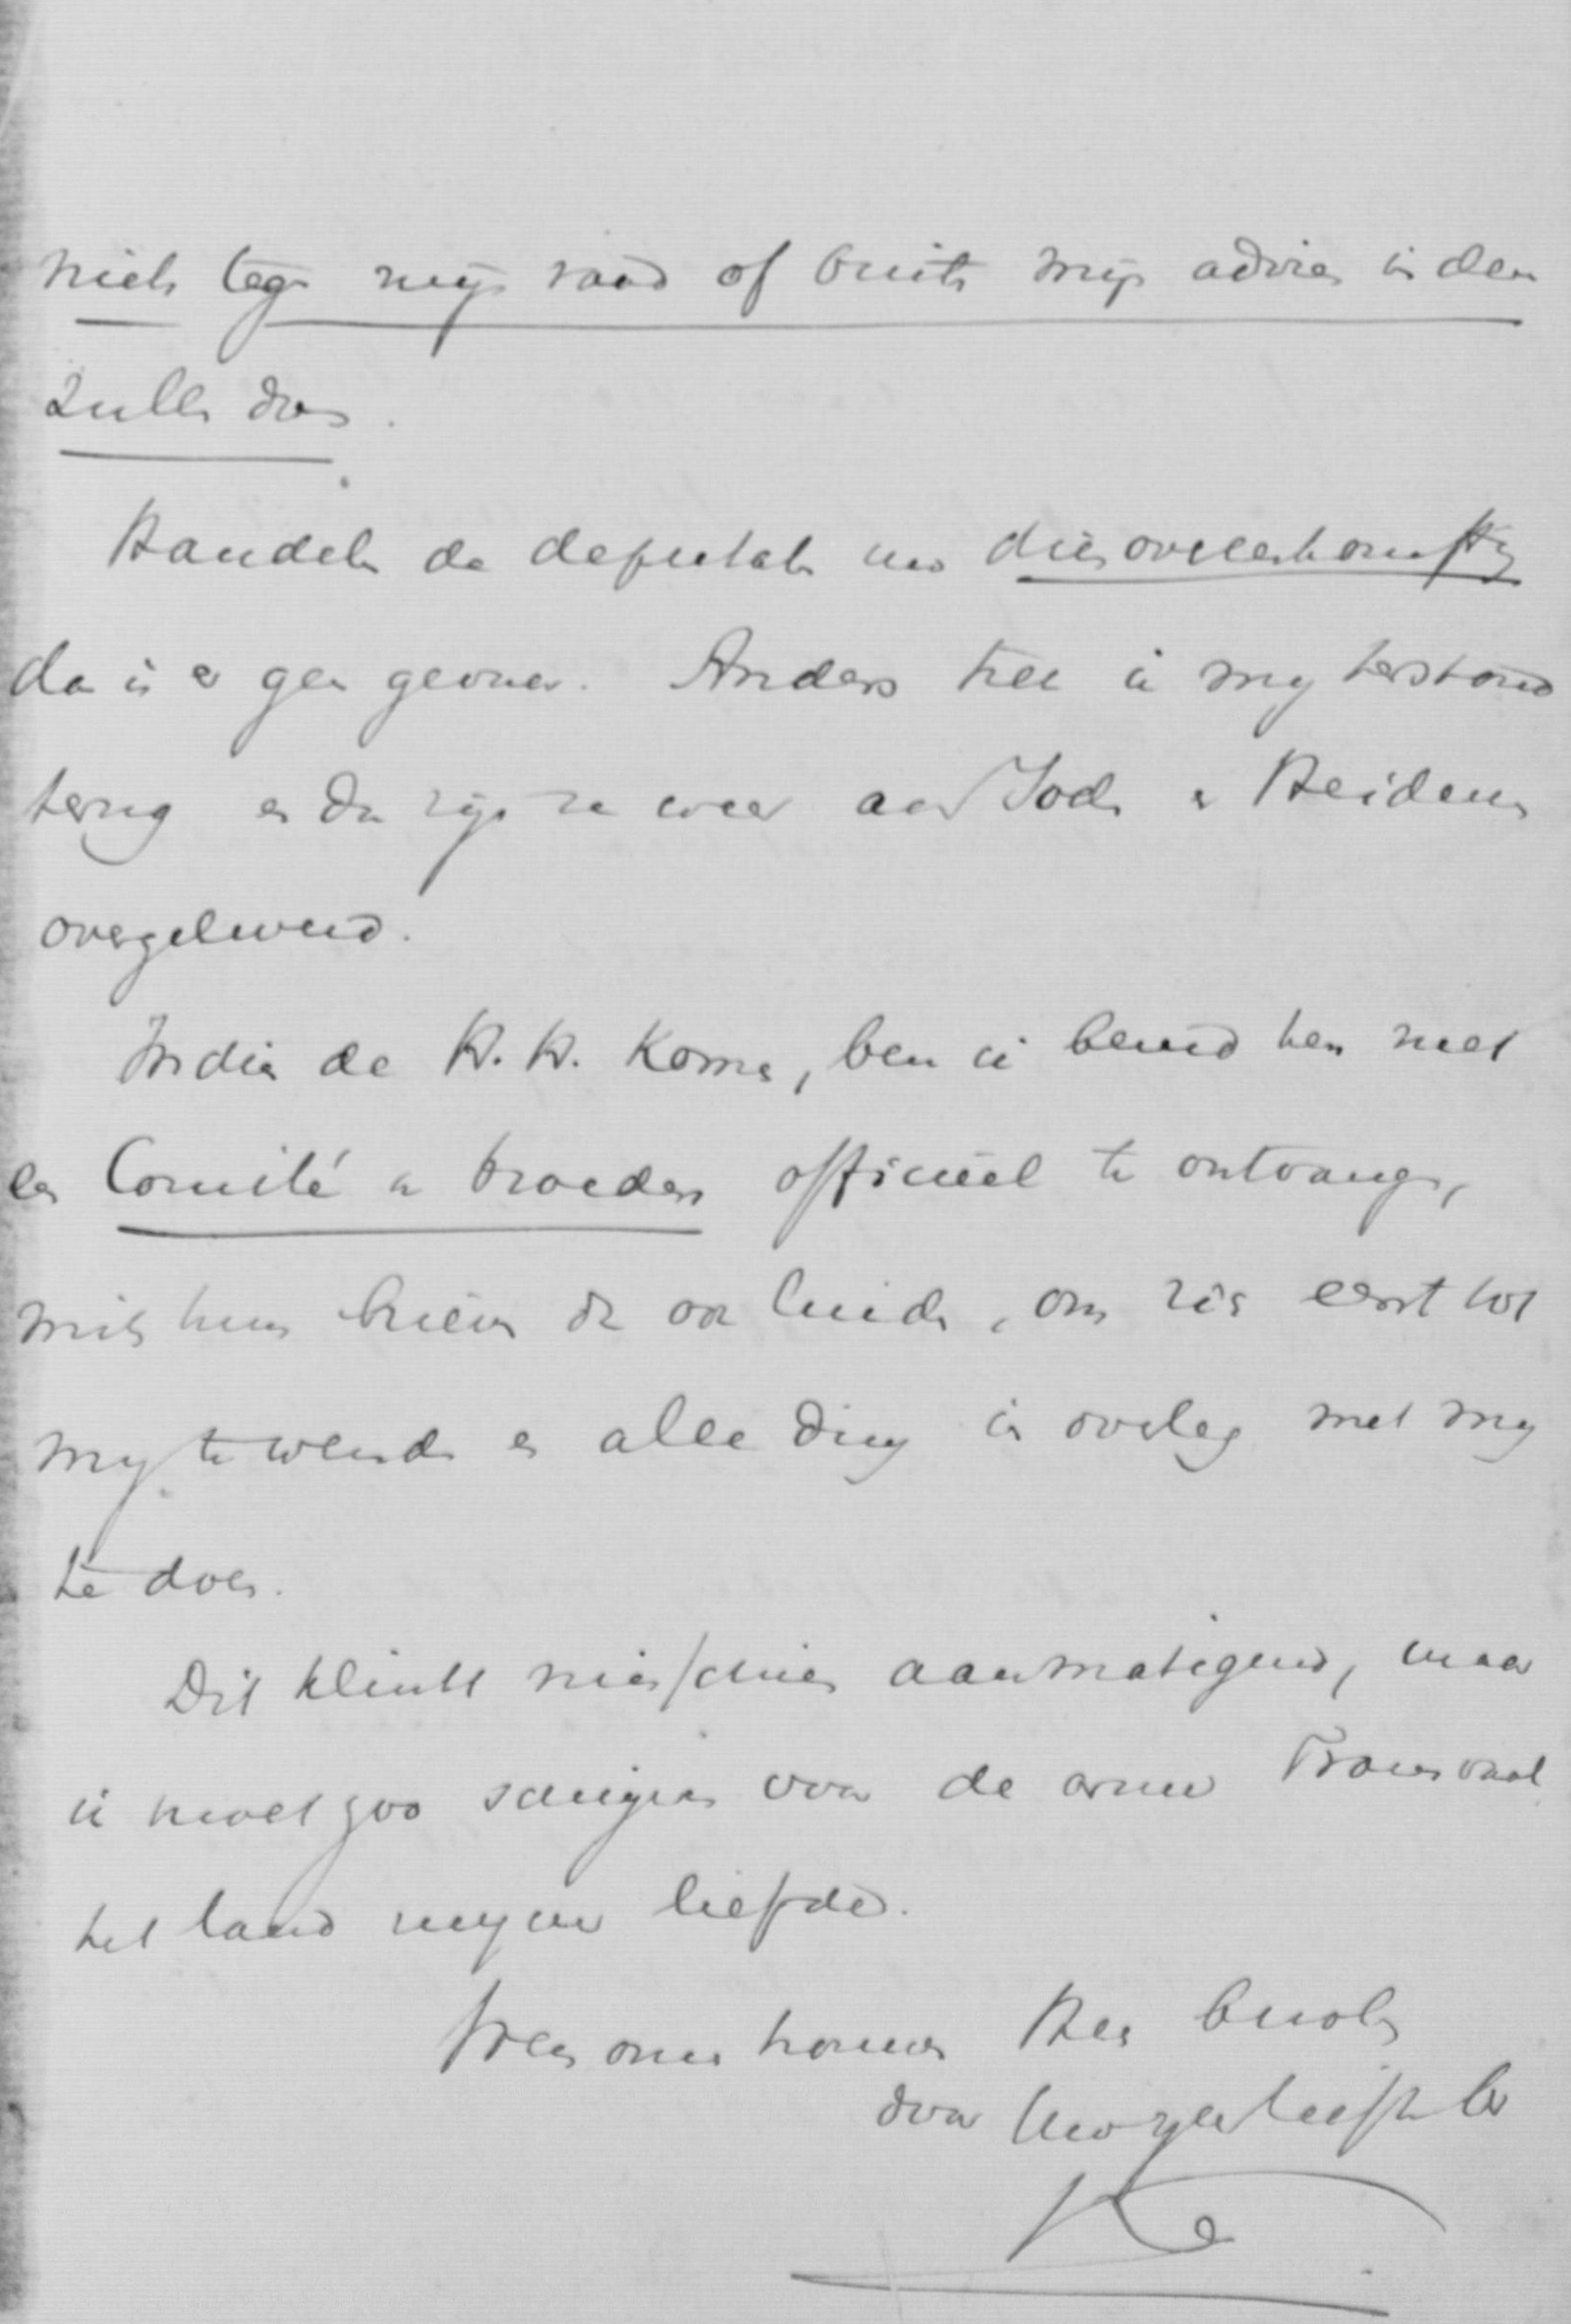 niets tegen mijn raad of buiten mijn advies in den
zullen doen.
Handelen de deputaten nu dienovereenkomstig
dan is er geen gevaar. Anders trek ik mij terstond
terug en dan zijn ze weer aan Joden en Heidenen
overgeleverd.
Indien de H.H. Komen, ben ik bereid hen met
een Comité van broeders officieel te ontvangen,
mits hun brieven aan luiden, om zich eerst tot
mij te wenden en alle ding in overleg met mij
te doen.
Dit klinkt misschien aanmatigend, maar
ik moet zoo schrijven voor de arme Transvaal
het land mijner liefde.
onze komen Hen
door Uw zeer liefh. br
K